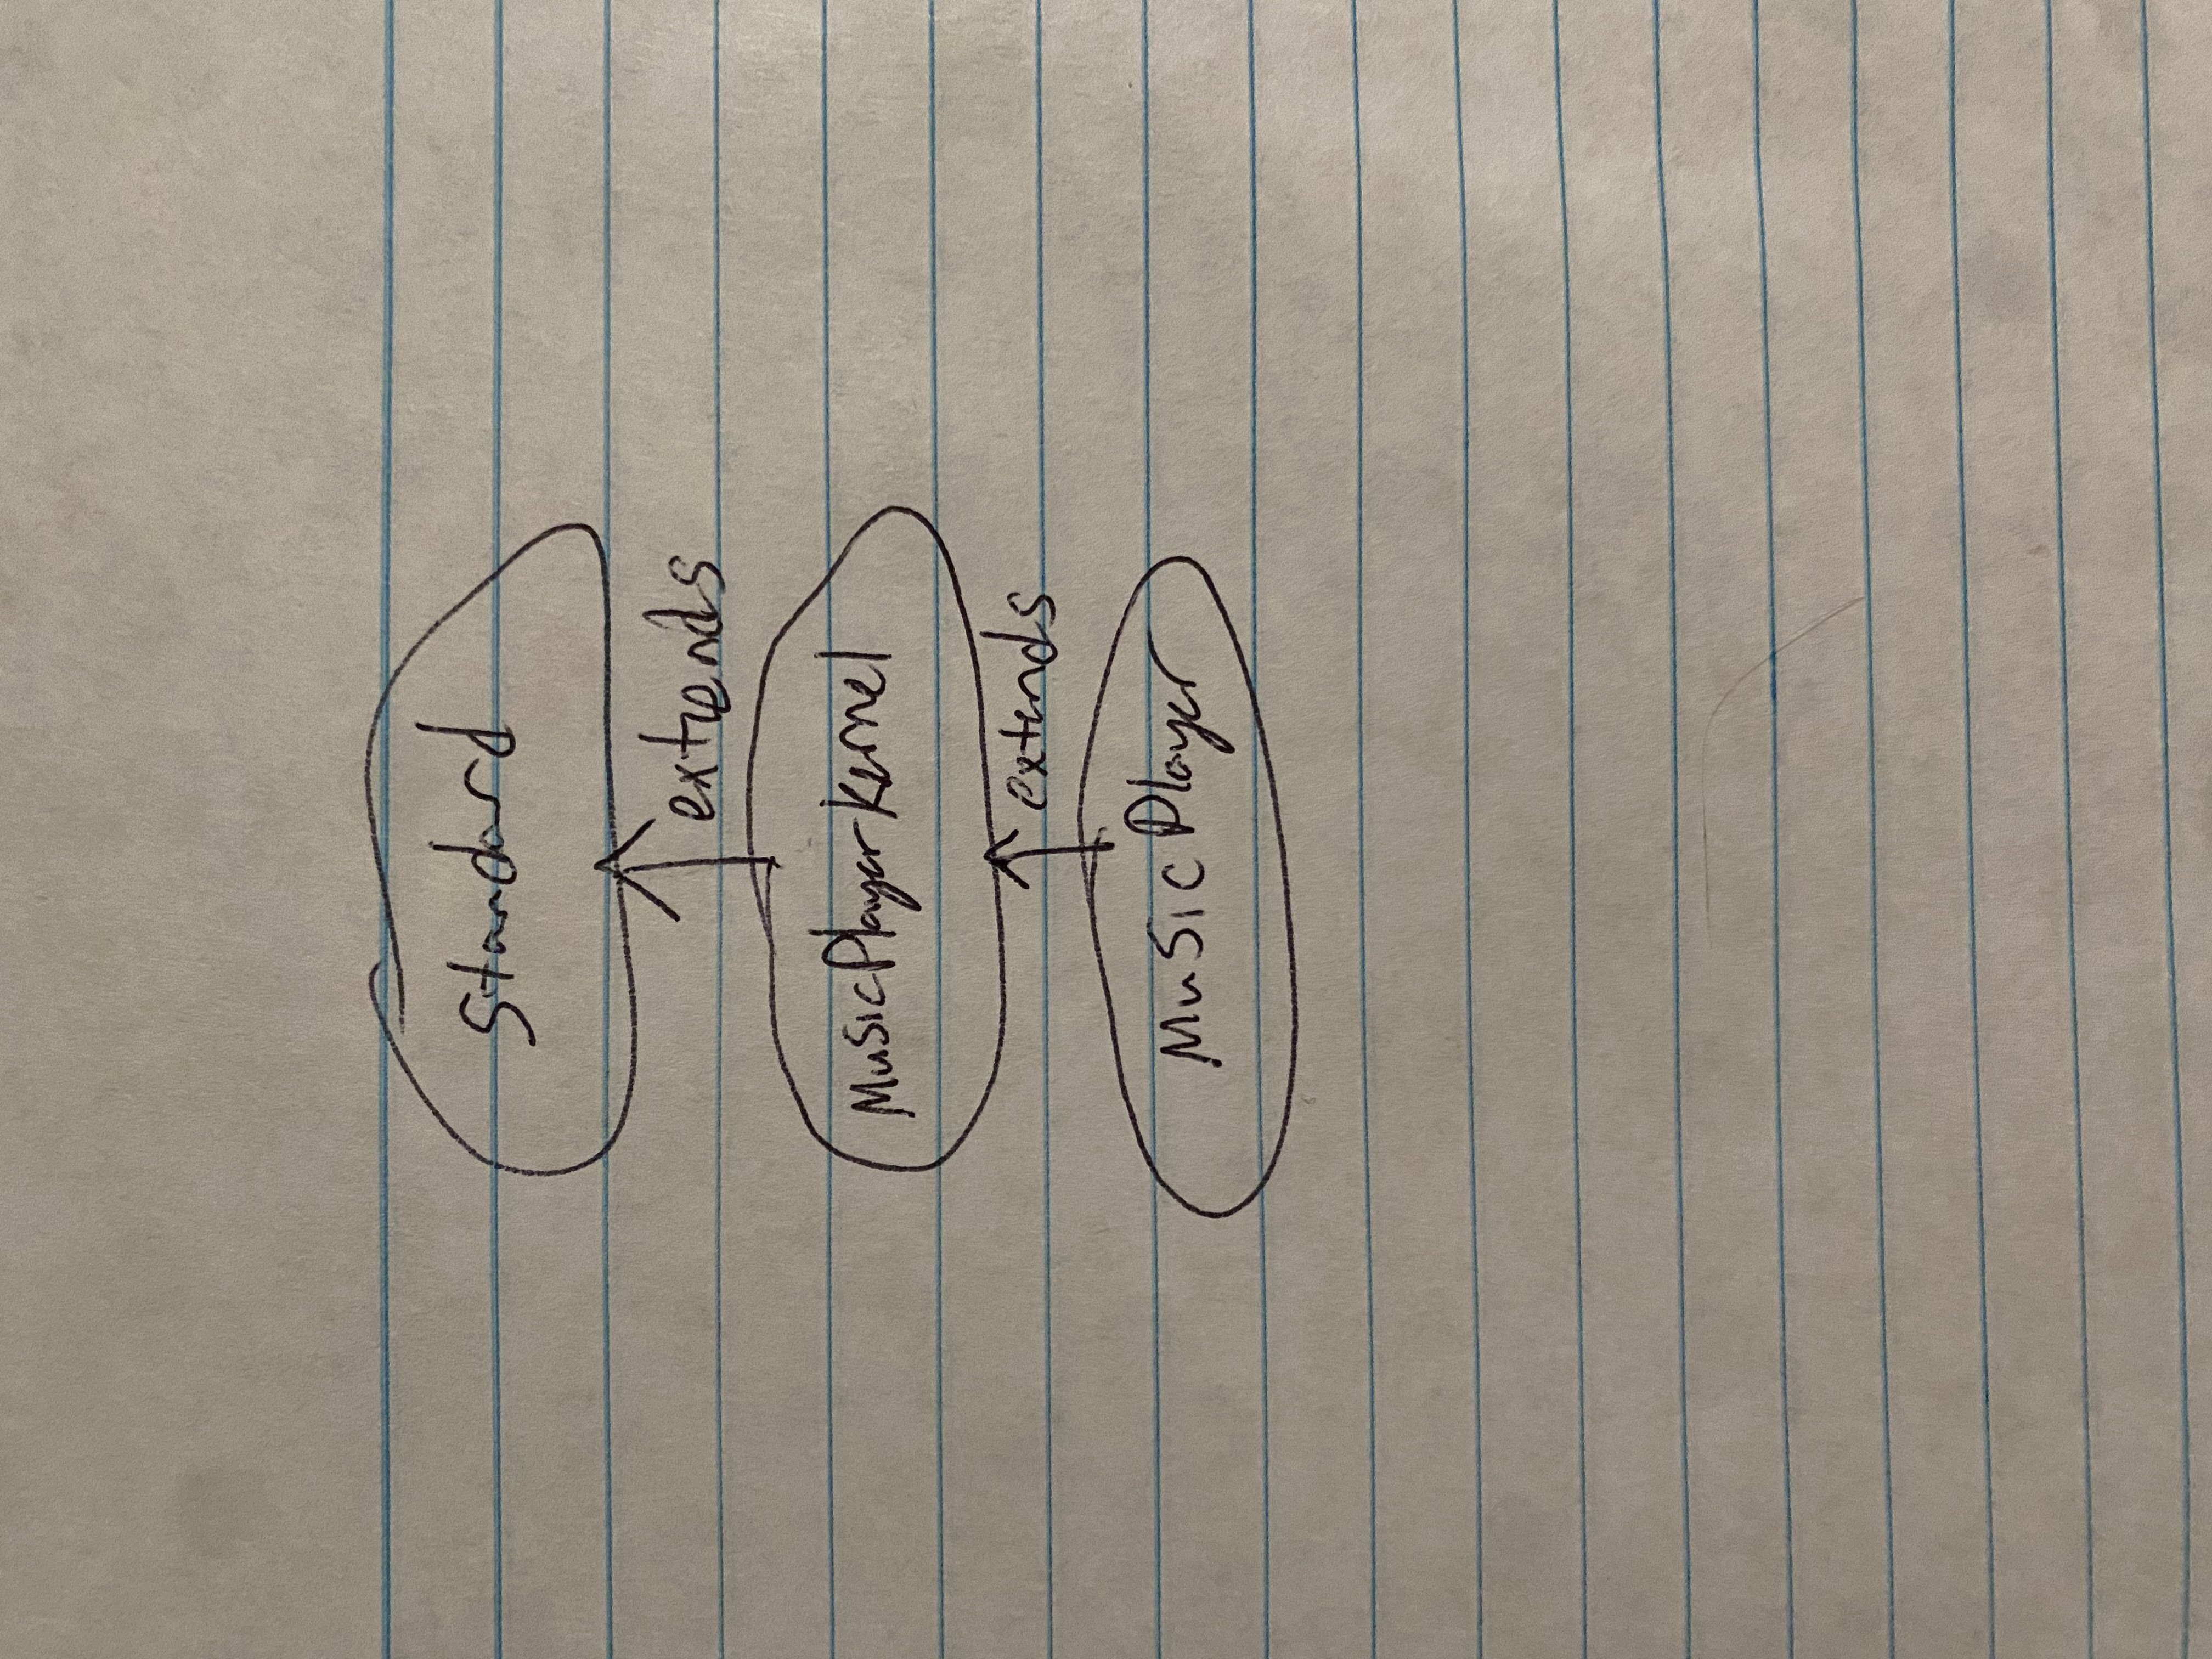 Standard
extends
MusicPlayerKernel
extends
MusicPlayer